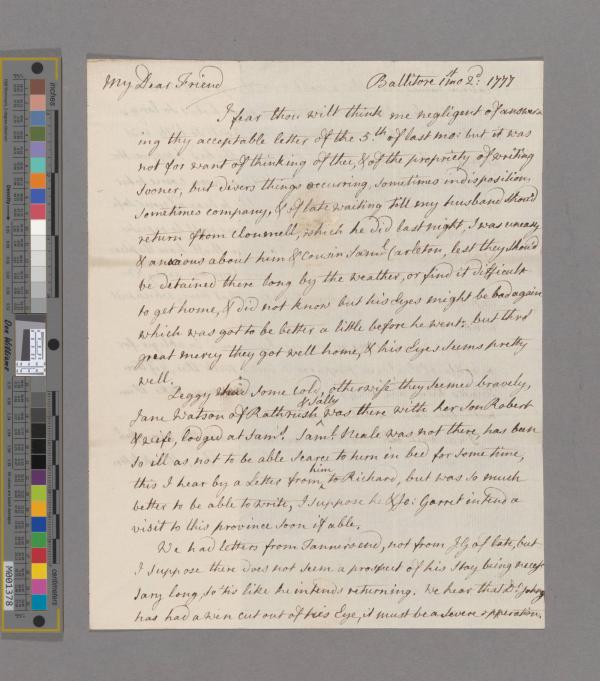 My Dear Friend
Ballitore 1st mo 2d: 1777
I fear thou wilt think me negligent of answer=
ing thy acceptable letter of the 5.th of last mo: but it was
not for want of thinking of thee, & of the propriety of writing
sooner, but divers things occurring, sometimes indisposition,
sometimes company, & of late waiting till my husband should
return from Clonmell, which he did last night, I was uneasy
& anxious about him & cousin Saml. Carleton, lest they should
be detained there long by the weather, or find it difficult
to get home, & did not know but his Eyes might be bad again
which was got to be better a little before he went. but thro'
great mercy they got well home, & his Eyes seems pretty
well.
Leggy had some cold, otherwise they seemed bravely,
& Sally
Jane Watson of Rathrush was there with her son Robert
& wife, lodged at Saml. Saml. Neale was not there, has been
so ill as not to be able scarce to turn in bed for some time,
him
this I hear by a Letter from to Richard, but was so much
better to be able to write, I suppose he & Jo: Garret intend a
visit to this province soon if able.
We had letters from Tanners end, not from of late, but
I suppose there does not seem a prospect of his stay being neces
sary long, so 'tis like he intends returning. We hear that
has had a wen cut out of his Eye, it must be a severe opperation.
inches
centimeters
Density
Don Williams
M001378